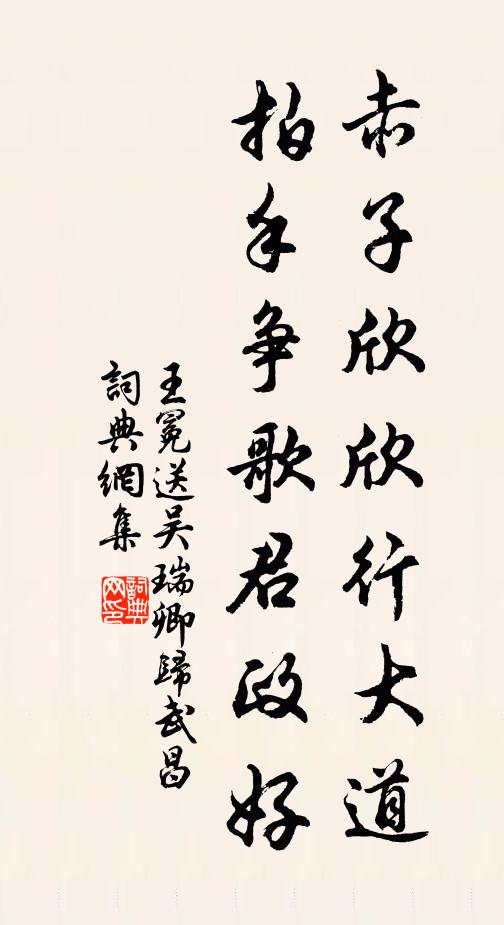 赤子欣欣行大道
拍手争歌君政好
王冕送吴瑞卿歸武昌
詞典網集
詞典
网印